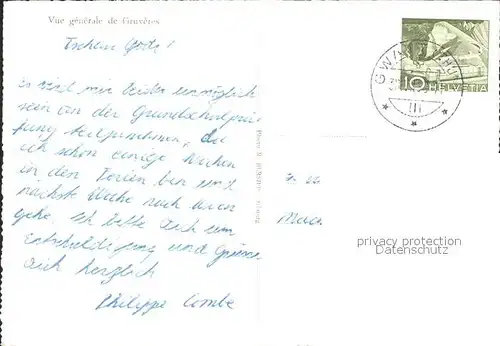 Vue générale de Gruyères
Tschau Götz!
Es wird mir leider unmöglich
sein an der Grundschulprü-
fung teilzunehmen, da
ich schon einige Wochen
in den Ferien bin und
nächste Woche nach
gehe. Ich bitte dich um
Entschuldigung und Grüsse
dich herzlich
Philippe Combe
10 HELVETIA
GW
III
privacy protection
Datenschutz